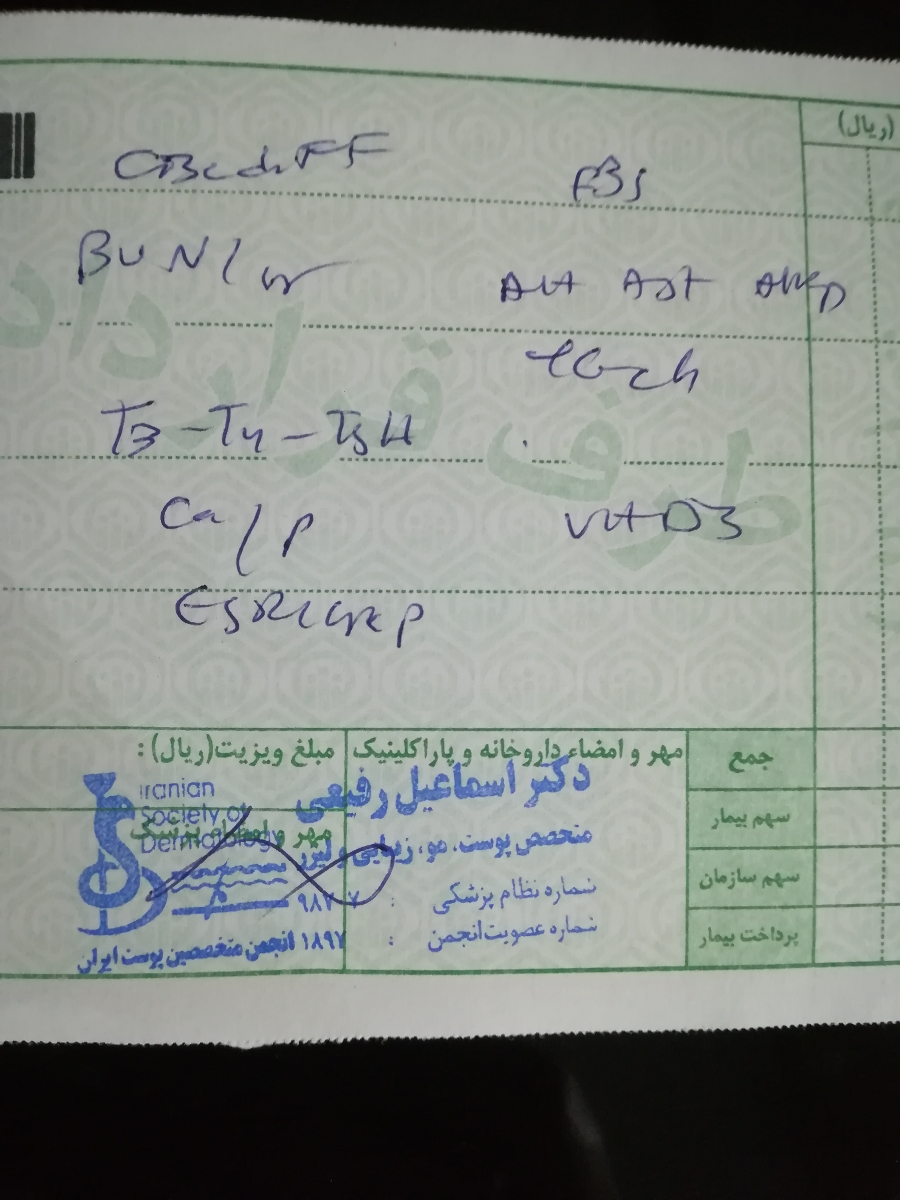 (ریال)
CBC diFF
FBS
BUN / cr
Alt Ast AlkP
TG-ch
T3 - T4 - TSH
Ca / P
Vit D3
ESR / CRP
طرف قرارداد
جمع
مهر و امضاء داروخانه و پاراکلینیک
مبلغ ویزیت(ریال) :
سهم بیمار
سهم سازمان
پرداخت بیمار
مهر و امضاء پزشک
Iranian
Society of
Dermatology
دکتر اسماعیل رفیعی
متخصص پوست، مو، زیبایی و لیزر
شماره نظام پزشکی :
شماره عضویت انجمن : ۱۸۹۷
انجمن متخصصین پوست ایران